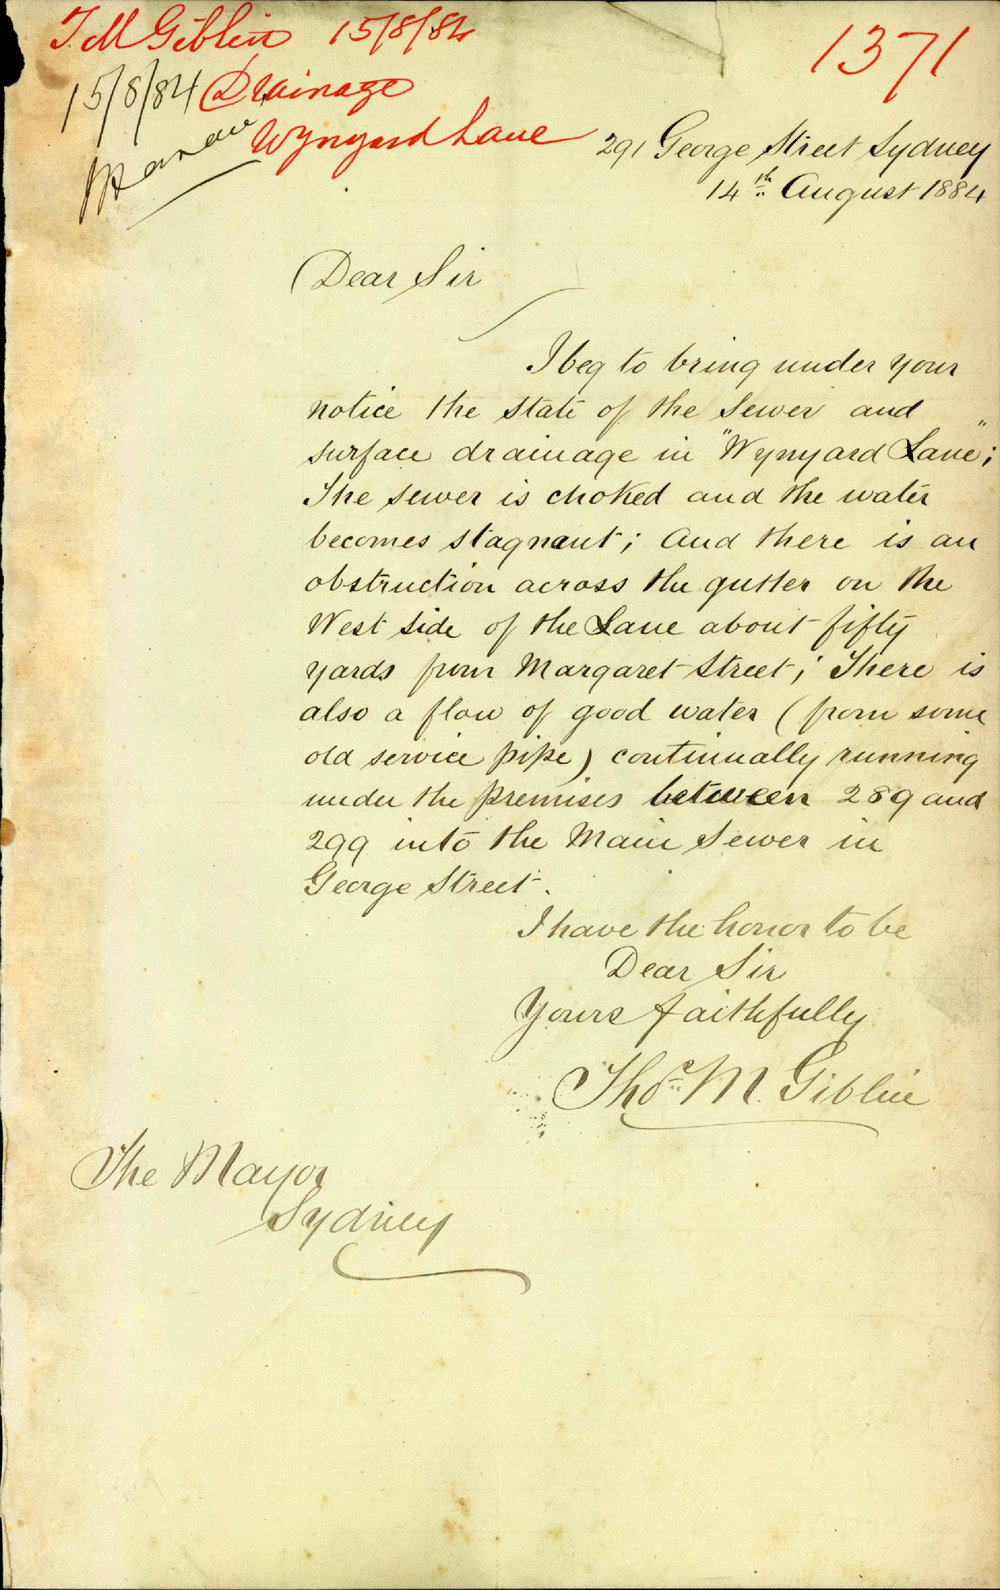 T M Giblin 15/8/84
1371
15/8/84 Drainage
Wynyard Lane
291 George Street Sydney
14th August 1884
Dear Sir
I beg to bring under your
notice the state of the Sewer and
surface drainage in "Wynyard Lane";
The sewer is choked and the water
becomes stagnant; and there is an
obstruction across the gutter on the
West side of the Lane about fifty
yards from Margaret Street; There is
also a flow of good water (from some
old service pipe) continually running
under the premises between 289 and
299 into the Main Sewer in
George Street.
I have the honor to be
Dear Sir
Yours faithfully
Thos M. Giblin
The Mayor
Sydney